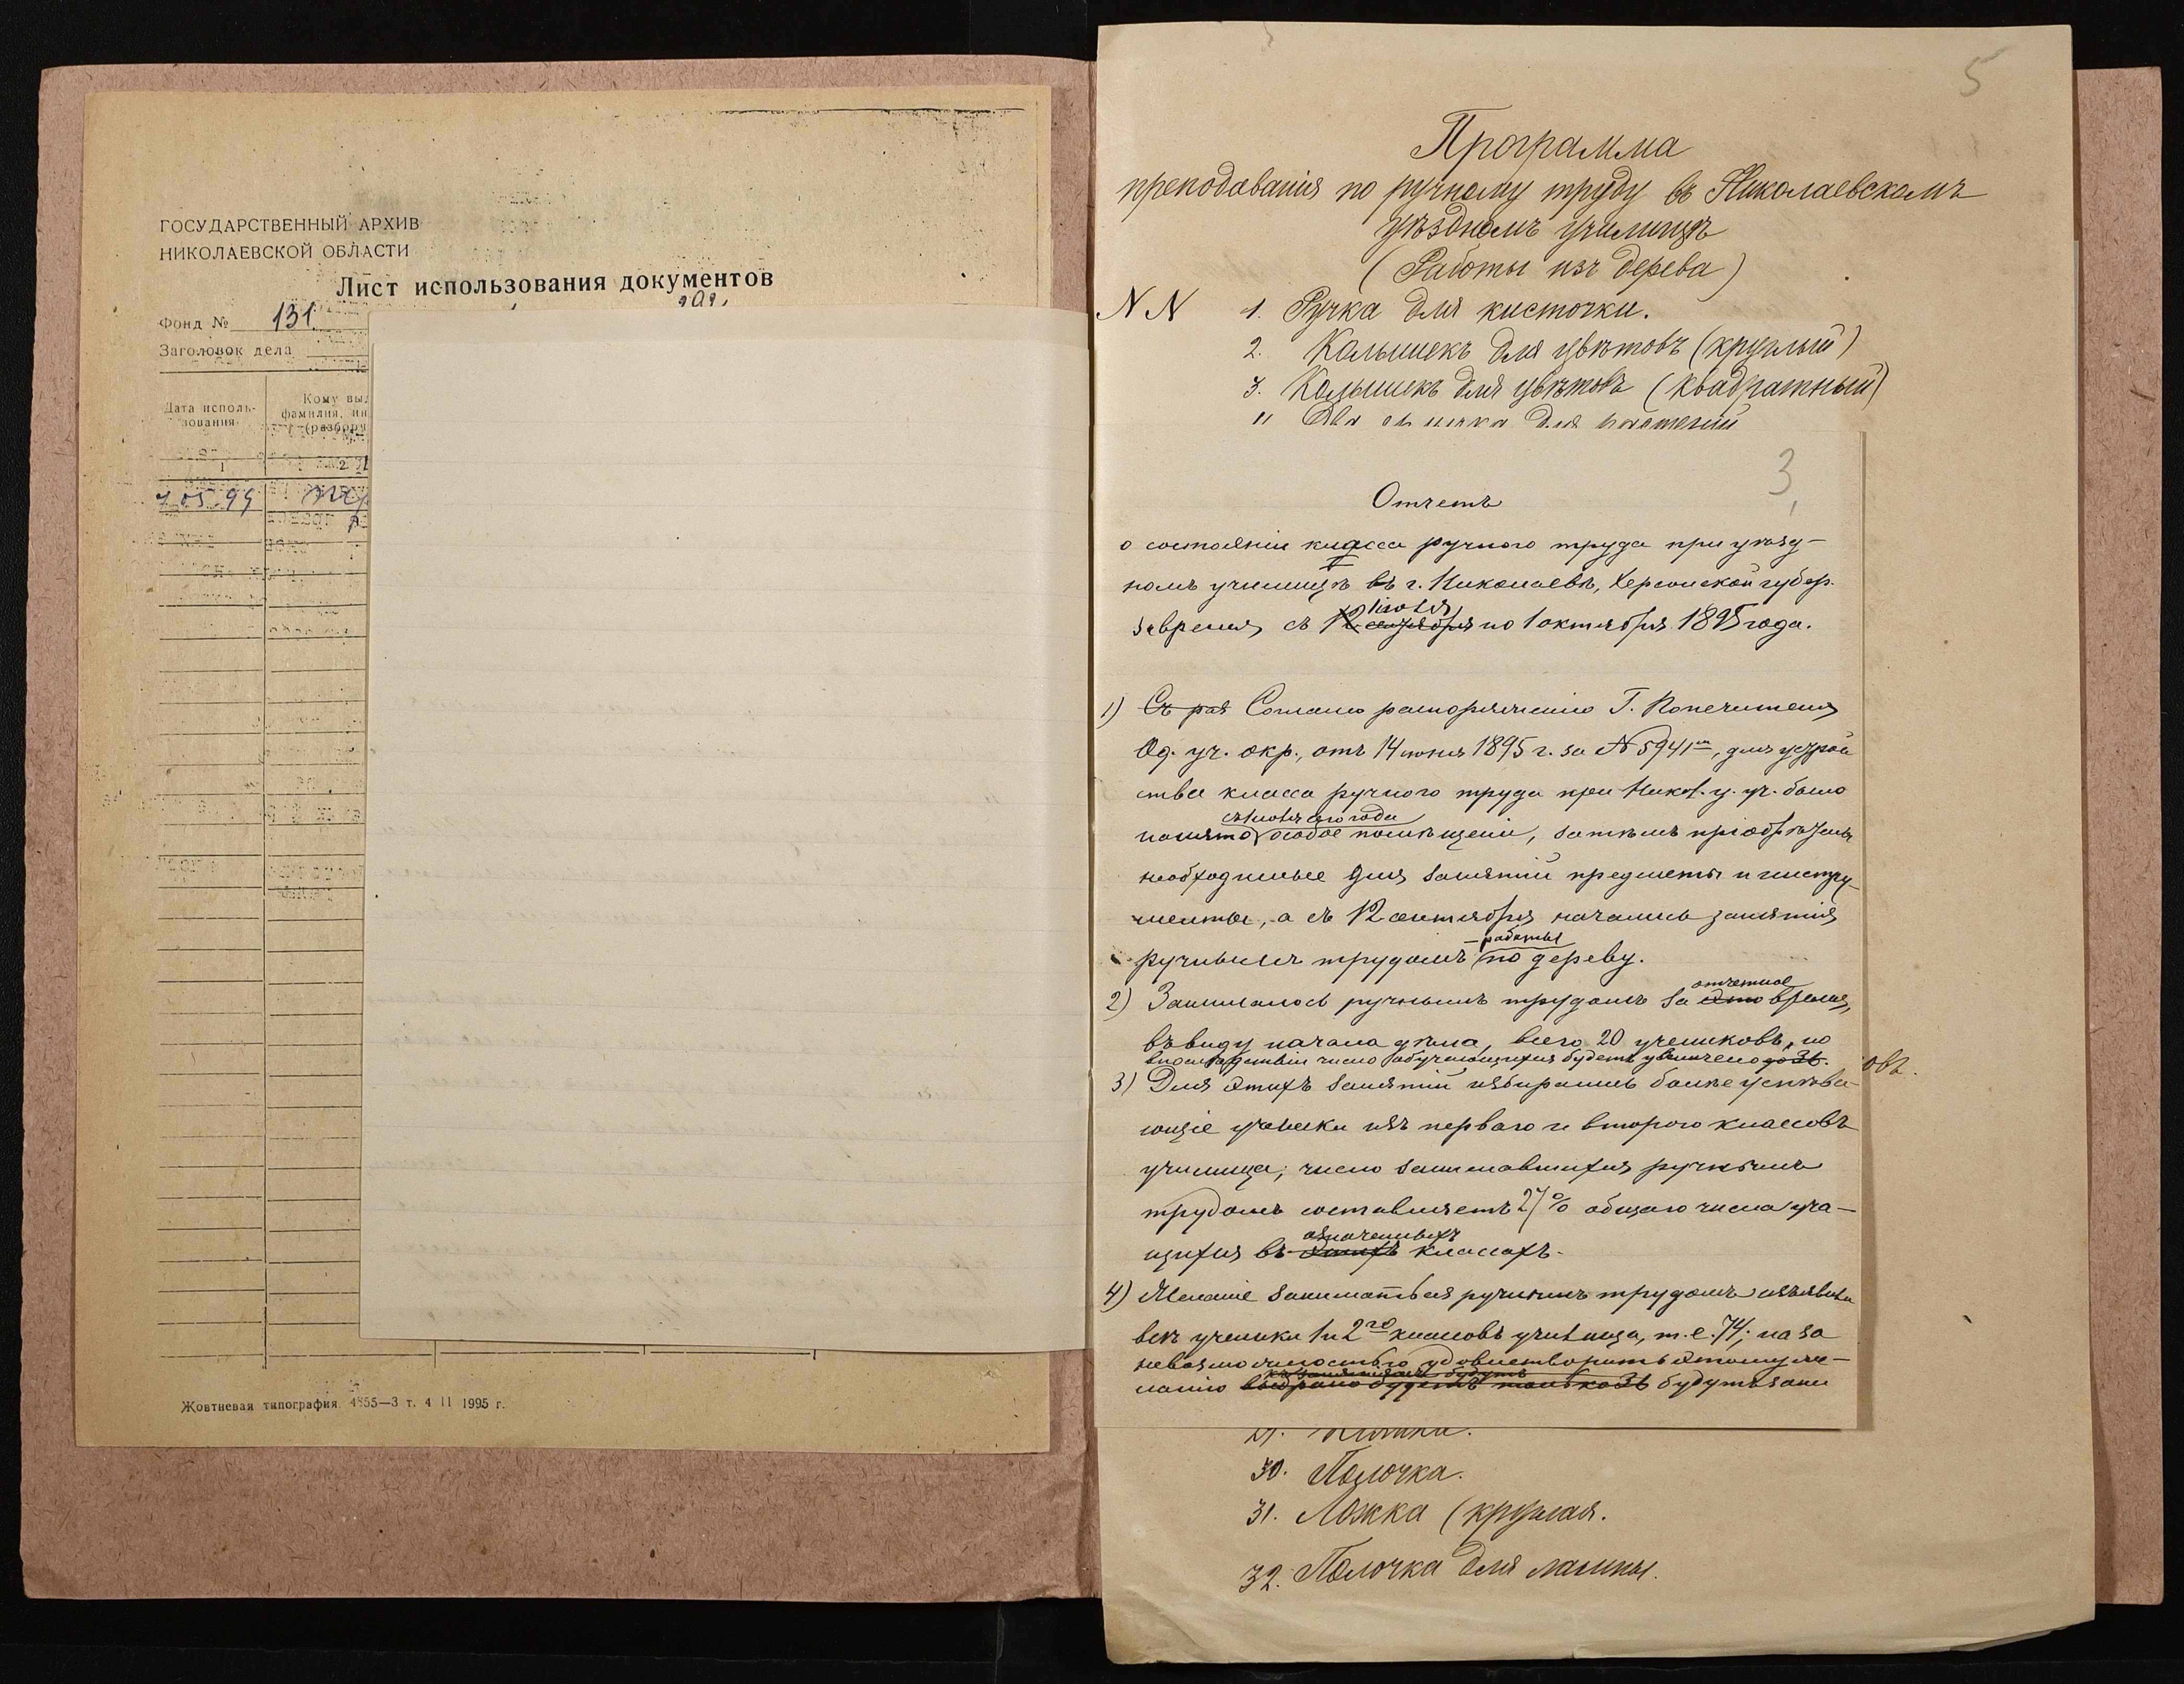 ГОСУДАРСТВЕННЫЙ АРХИВ
НИКОЛАЕВСКОЙ ОБЛАСТИ
Лист использования документов
Фонд № 131
Заголовок дела
Дата исполь-
зования
Кому вы
фамилия, ин
(разбор
1
2
7.05.99
Жовтневая типография 4855—3 т. 4 II 1995 г.
5
Программа
преподаванія по ручному труду въ Николаевскомъ
уѣздномъ училищѣ
(Работы изъ дерева)
NN 1. Ручка для кисточки.
2. Колышекъ для цвѣтовъ (круглый)
3. Колышекъ для цвѣтовъ (квадратный)
для
3
Отчетъ
о состояніи класса ручного труда при уѣзд-
номъ училищѣ въ г. Николаевѣ, Херсонской губер.
за время съ 12 сентября 1 іюля по 1 октября 1895 года.
1) Съ рас Согласно распоряженію Г. Попечителя
Од. уч. окр., отъ 14 іюня 1895 г. за № 5941, для устрой
ства класса ручного труда при Никол. у. уч. было
нанято съ 1 іюля сего года особое помѣщеніе, затѣмъ пріобрѣтены
необходимые для занятій предметы и инстру-
менты, а съ 12 сентября начались занятія
ручнымъ трудомъ – работы по дереву.
2) Занималось ручнымъ трудомъ за это отчетное время,
въ виду начала дѣла, всего 20 учениковъ, но
впослѣдствіи число обучающихся будетъ увеличено до 36.
3) Для этихъ занятій избирались болѣе успѣва-
ющіе ученики изъ перваго и второго классовъ
училища; число занимавшихся ручнымъ
трудомъ составляетъ 27% общаго числа уча-
щихся въ этихъ означенныхъ классахъ.
4) Желаніе заниматься ручнымъ трудомъ изъявили
всѣ ученики 1 и 2го классовъ училища, т. е. 74; но за
невозможностью удовлетворить этому же-
ланію къ занятіямъ будутъ выбрано будетъ только 36 будутъ зани
овъ.
30. Полочка.
31. Ложка (круглая.
32. Полочка для лампы.